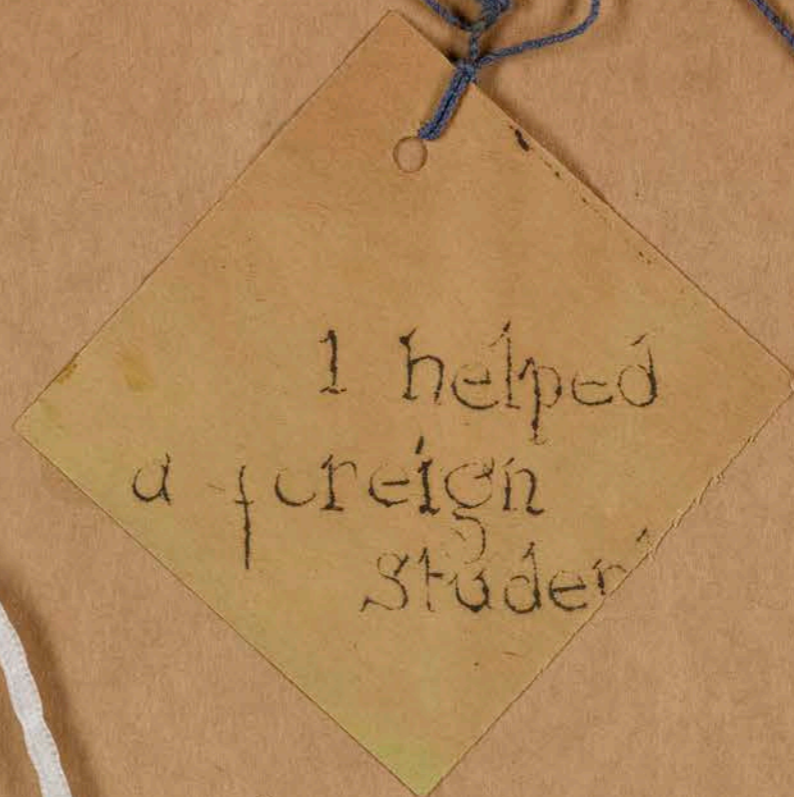 I helped
a foreign
Student